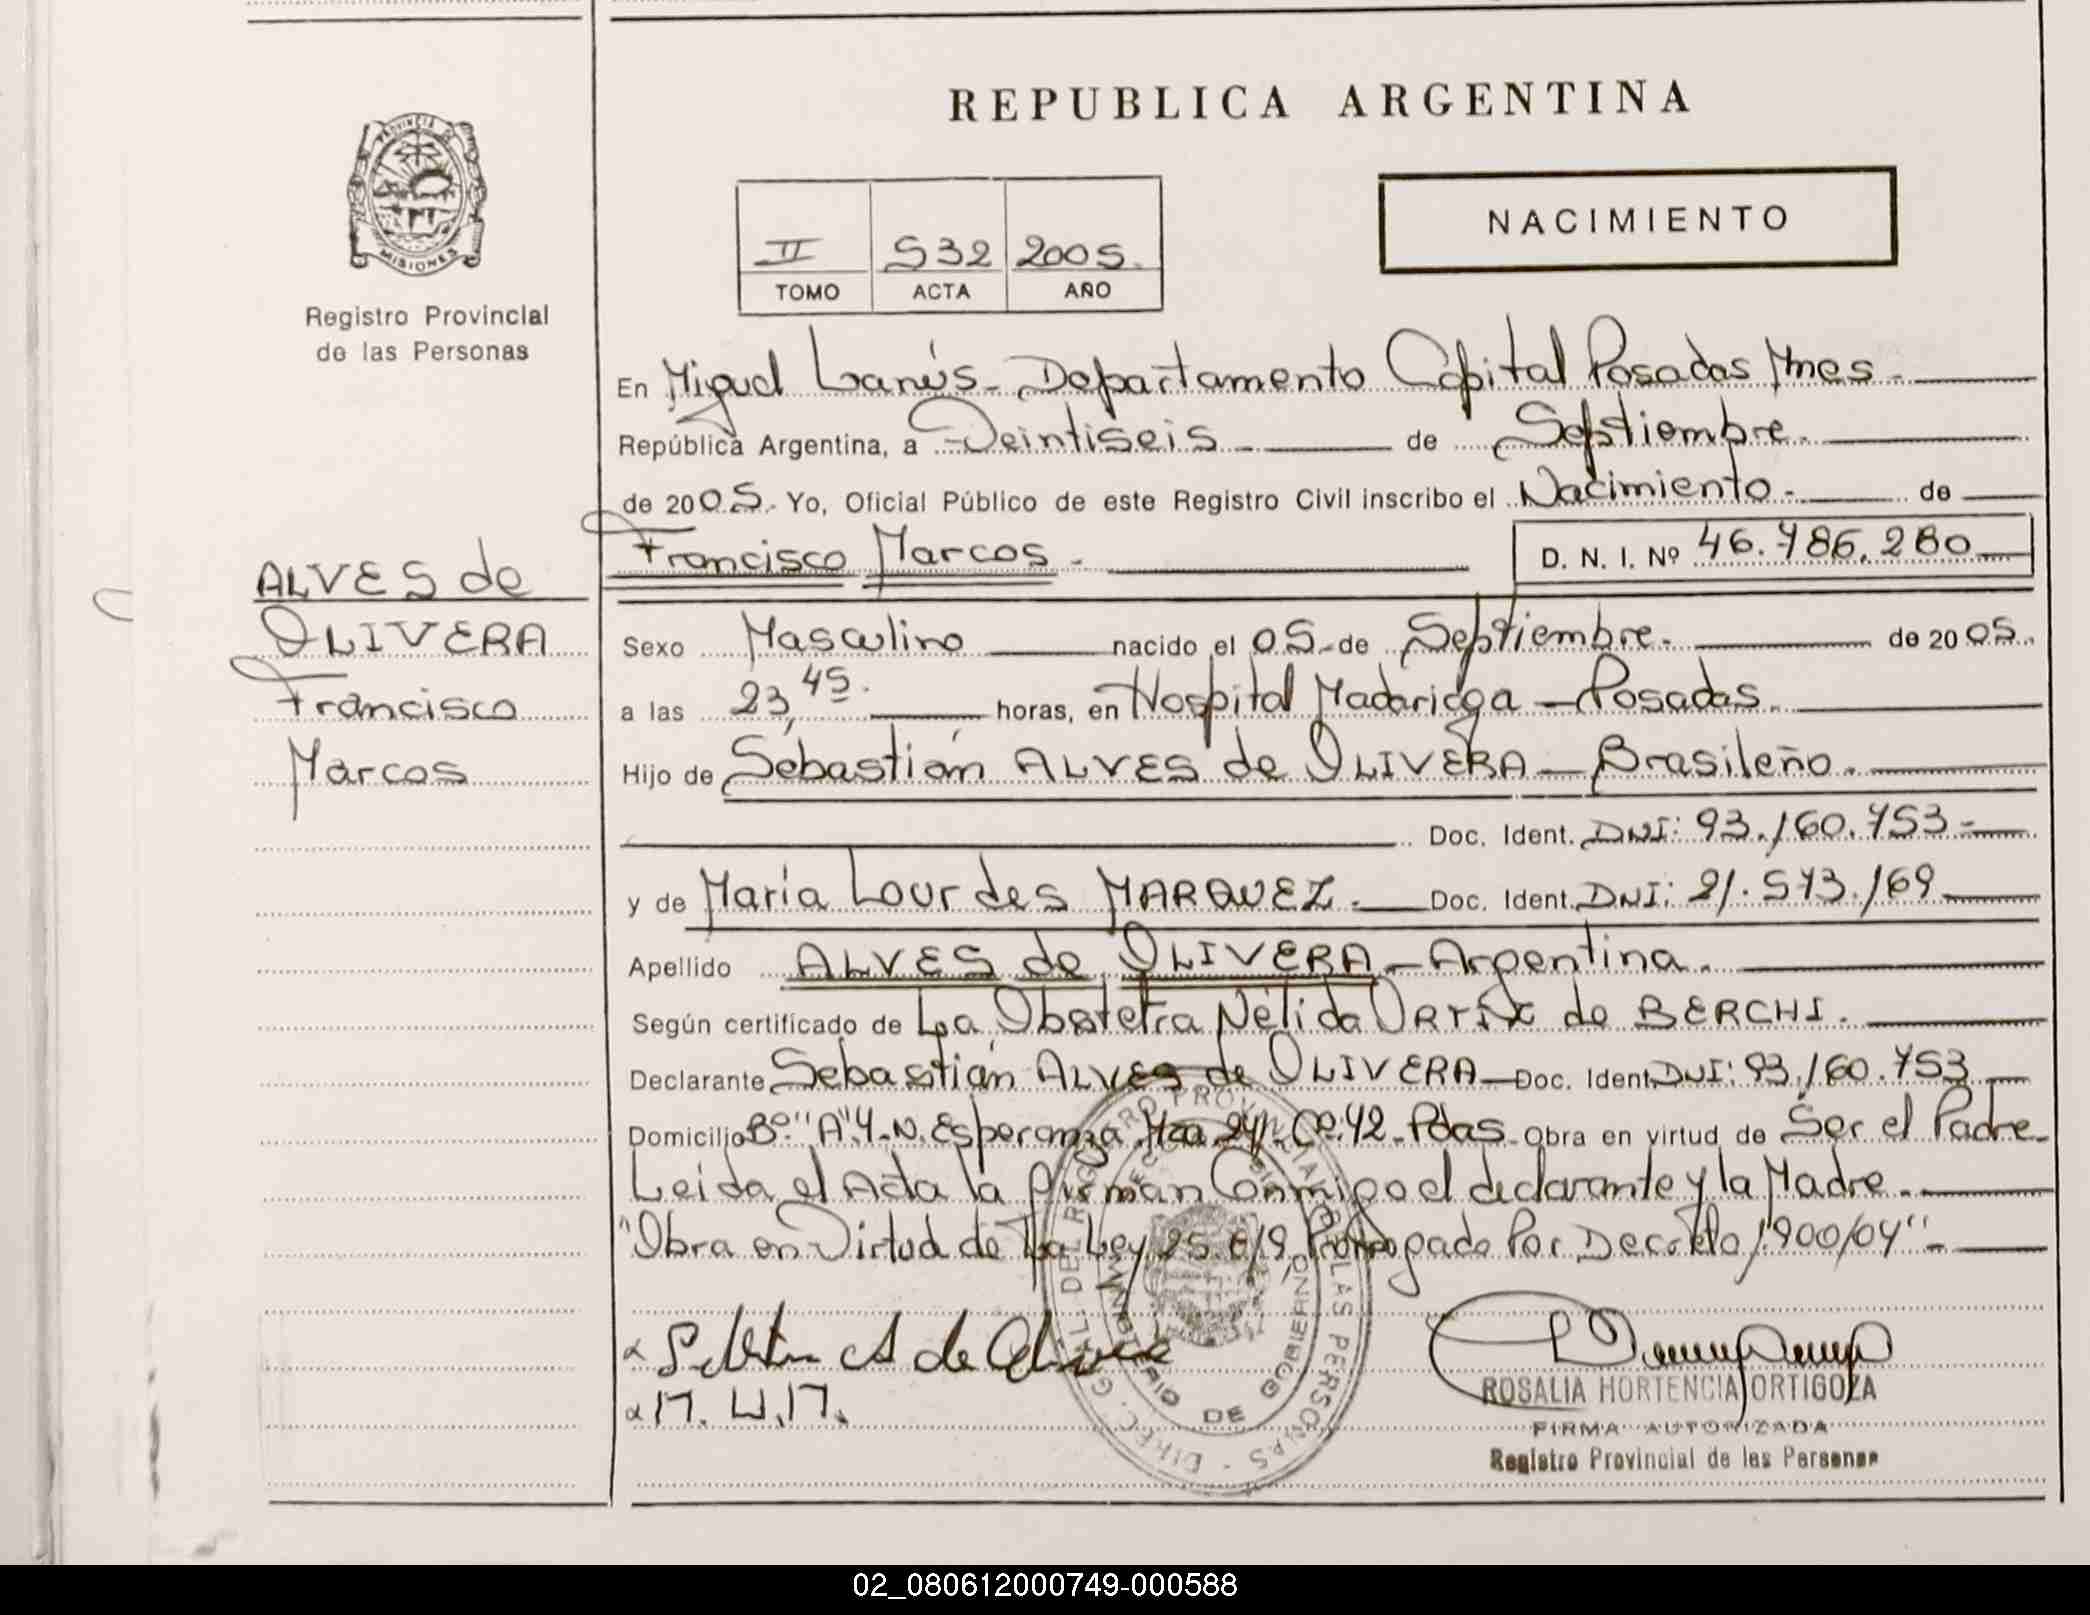 REPUBLICA ARGENTINA
PROVINCIA DE
MISIONES
Registro Provincial
de las Personas
II 532 2005.
TOMO ACTA AÑO
NACIMIENTO
En Miguel Lanús - Departamento Capital Posadas Mnes -
República Argentina, a Veintiseis - de Septiembre.
de 2005.- Yo, Oficial Público de este Registro Civil inscribo el Nacimiento - de
Francisco Marcos -
D. N. I. Nº 46.786.280
ALVES de
OLIVERA
Francisco
Marcos
Sexo Masculino nacido el 05.- de Septiembre. de 2005.
a las 23,45. horas, en Hospital Madariaga - Posadas.
Hijo de Sebastián ALVES de OLIVERA - Brasileño.
Doc. Ident. DNI: 93.160.753 -
y de María Lourdes MARQUEZ. Doc. Ident. DNI: 21.573.169
Apellido ALVES de OLIVERA - Argentina.
Según certificado de La Obstetra Nélida de BERCHI.
Declarante Sebastián ALVES de OLIVERA - Doc. Ident. DNI: 93.160.753
Domicilio Bº "A" 4 - N. Esperanza Mza 241 - Cª 42 - Pdas - Obra en virtud de Ser el Padre -
Leida el Acta la firman Conmigo el declarante y la Madre.
"Obra en Virtud de La Ley 25.819, Prorrogado Por Decreto 1900/04" -
DIREC. GRAL. DEL REGISTRO PROVINCIAL DE LAS PERSONAS
MINISTERIO DE GOBIERNO
ROSALIA HORTENCIA ORTIGOZA
FIRMA AUTORIZADA
Registro Provincial de las Personas
02_080612000749-000588